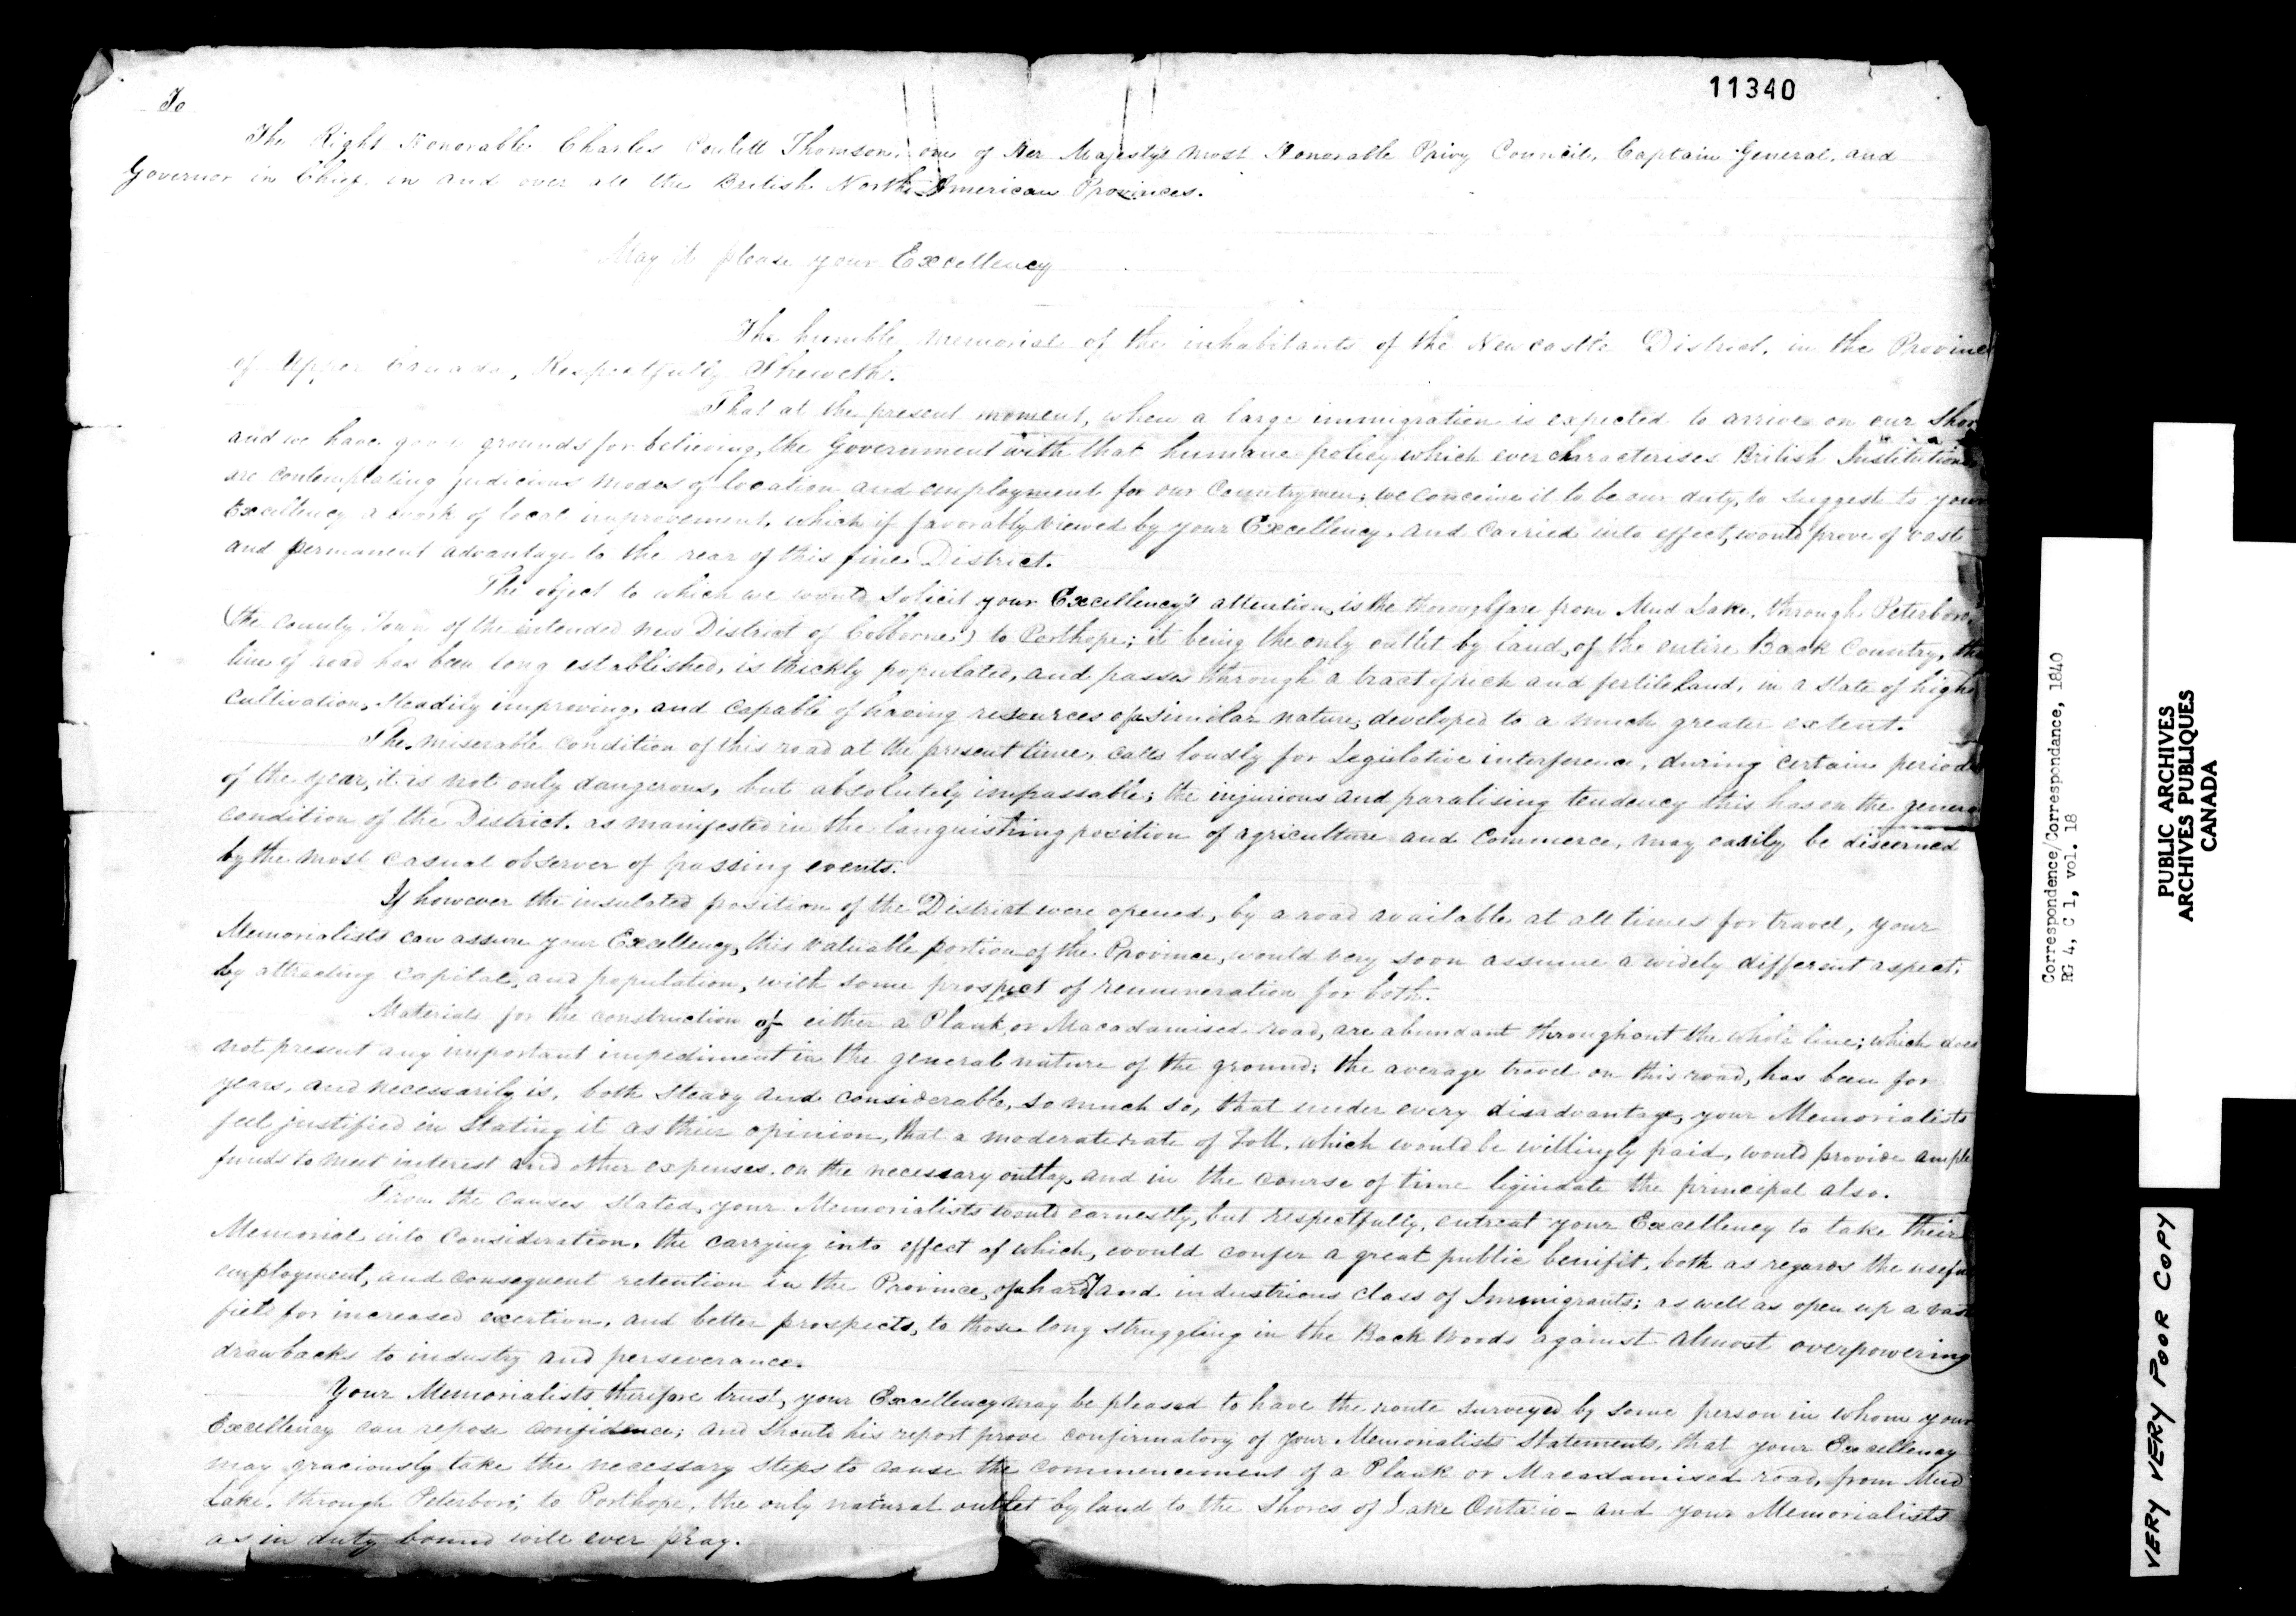 11340
To
The Right Honorable Charles Poulett Thomson, one of Her Majesty's most Honorable Privy Council, Captain General, and
Governor in Chief in and over all the British North American Provinces.
May it please your Excellency
The humble memorial of the inhabitants of the Newcastle District, in the Province
of Upper Canada, Respectfully Sheweth.
That at the present moment, when a large immigration is expected to arrive on our Shor
and we have good grounds for believing, the Government with that humane policy which ever characterises British Institutions
are contemplating judicious modes of location and employment for our Countrymen; we conceive it to be our duty, to suggest to your
Excellency a work of local improvement, which if favorably viewed by your Excellency, and carried into effect, would prove of vast
and permanent advantage to the rear of this fine District.
The object to which we would solicit your Excellency's attention, is the thoroughfare from Mud Lake, through Peterboro,
(the County Town of the intended new District of Colborne) to Porthope; it being the only outlet by land, of the entire Back Country, the
line of road has been long established, is thickly populated, and passes through a tract of rich and fertile land, in a state of high
cultivation, steadily improving, and capable of having resources of a similar nature, developed to a much greater extent.
The miserable condition of this road at the present time, calls loudly for Legislative interference, during certain periods
of the year, it is not only dangerous, but absolutely impassable; the injurious and paralising tendency this has on the genera
condition of the District, as manifested in the languishing position of agriculture and commerce, may easily be discerned
by the most casual observer of passing events.
If however the insulated position of the District were opened, by a road available at all times for travel, your
Memorialists can assure your Excellency, this valuable portion of the Province, would very soon assume a widely different aspect;
by attracting capital, and population, with some prospect of remuneration for both.
Materials for the construction of either a Plank, or Macadamised road, are abundant throughout the whole line; which does
not present any important impediment in the general nature of the ground; the average travel on this road, has been for
years, and necessarily is, both steady and considerable, so much so, that under every disadvantage, your Memorialists
feel justified in stating it as their opinion, that a moderate rate of Toll, which would be willingly paid, would provide ample
funds to meet interest and other expenses on the necessary outlay, and in the course of time liquidate the principal also.
From the causes stated, your Memorialists would earnestly, but respectfully, entreat your Excellency to take their
Memorial into consideration, the carrying into effect of which, would confer a great public benifit, both as regards the usefu
employment, and consequent retention in the Province, of a hardy and industrious class of Immigrants; as well as open up a vast
field for increased exertion, and better prospects, to those long struggling in the Back Woods against almost overpowering
drawbacks to industry and perseverance.
Your Memorialists therefore trust, your Excellency may be pleased to have the route surveyed by some person in whom your
Excellency can repose confidence; and should his report prove confirmatory of your Memorialists statements, that your Excellency
may graciously take the necessary steps to cause the commencement of a Plank or Macadamised road, from Mud
Lake, through Peterboro, to Porthope, the only natural outlet by land to the shores of Lake Ontario - and your Memorialists
as in duty bound will ever pray.
Correspondence/Correspondance, 1840
RG 4, C 1, vol. 18
PUBLIC ARCHIVES
ARCHIVES PUBLIQUES
CANADA
VERY VERY POOR COPY